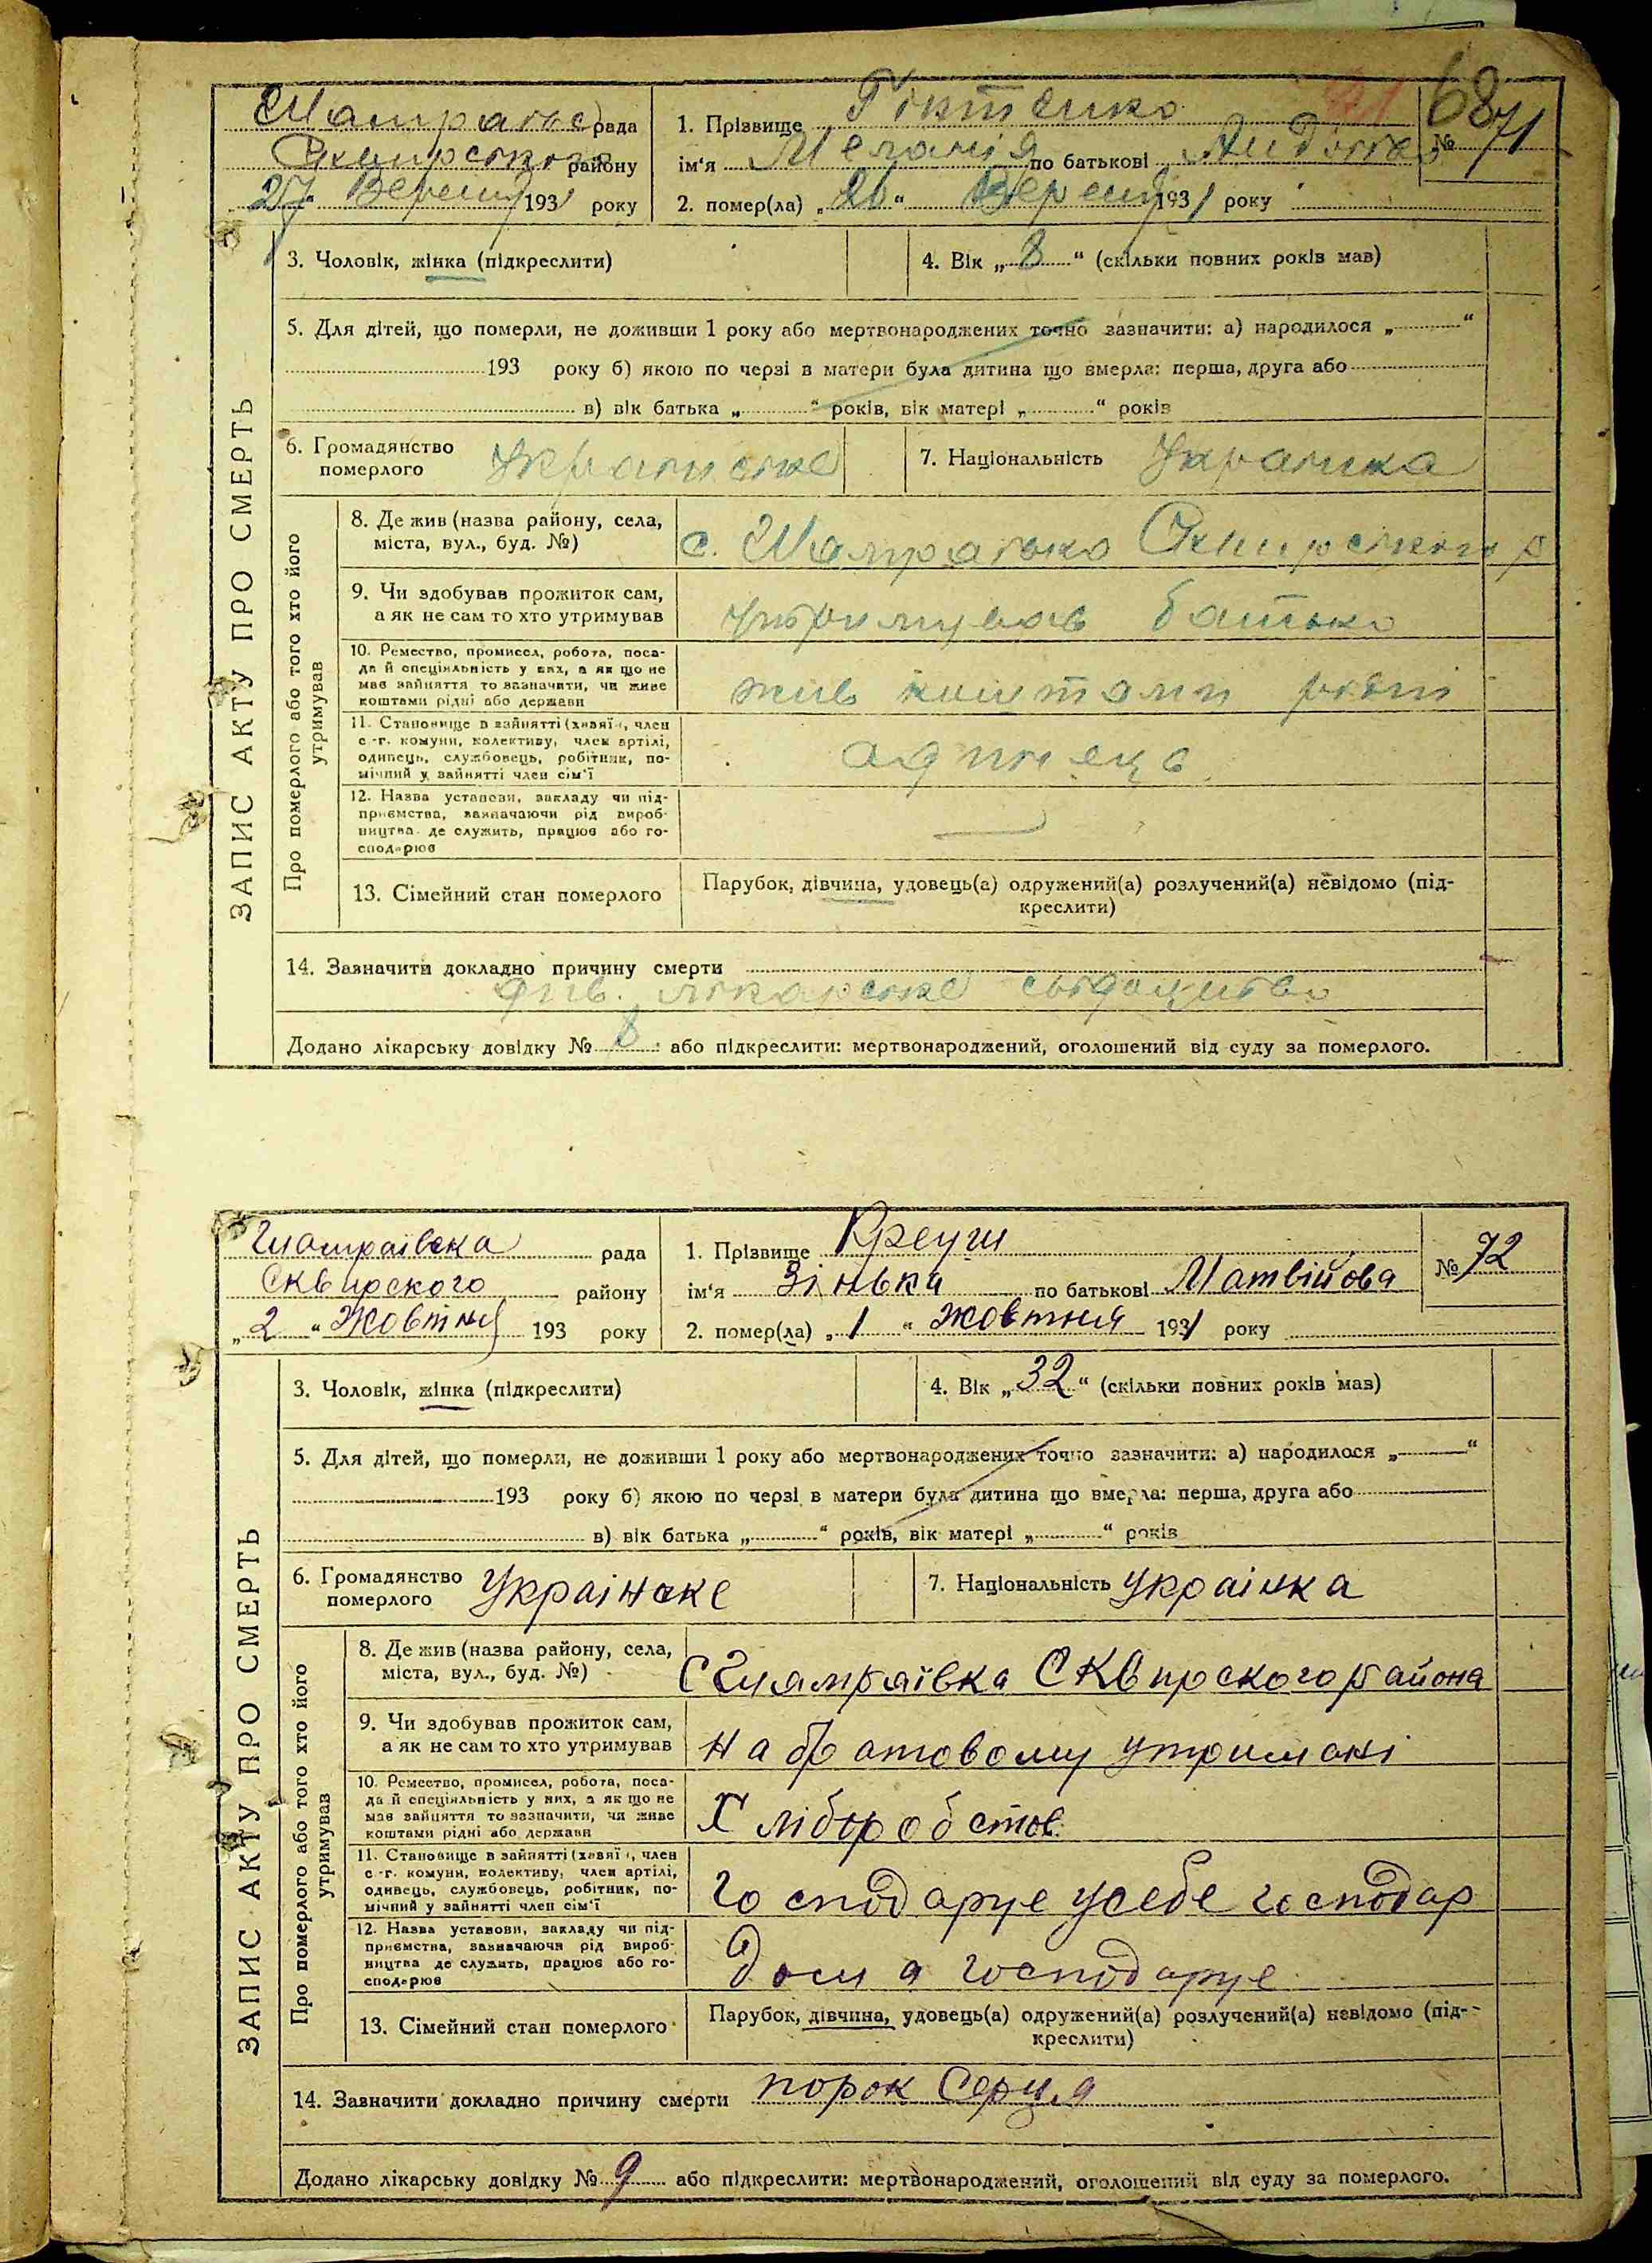 рада
району
27 193 року
1. Прізвище
ім'я Меланія по батькові
2. помер(ла) „26“ 1931 року
68
№ 71
ЗАПИС АКТУ ПРО СМЕРТЬ
3. Чоловік, жінка (підкреслити)
4. Вік „8“ (скільки повних років мав)
5. Для дітей, що померли, не доживши 1 року або мертвонароджених точно зазначити: а) народилося „ “
193 року б) якою по черзі в матери була дитина що вмерла: перша, друга або
в) вік батька „ “ років, вік матері „ “ років
6. Громадянство
померлого
7. Національність
Про померлого або того хто його
утримував
8. Де жив (назва району, села,
міста, вул., буд. №)
с.
9. Чи здобував прожиток сам,
а як не сам то хто утримував
утримував батько
10. Ремество, промисел, робота, поса-
да й спеціяльність у них, а як що не
має зайняття то зазначити, чи живе
коштами рідні або держави
жив коштами рідні
11. Становище в зайнятті (хазяїн, член
с.-г. комуни, колективу, член артілі,
одинець, службовець, робітник, по-
мічний у зайнятті член сім'ї
12. Назва установи, закладу чи під-
приємства, зазначаючи рід вироб-
ництва де служить, працює або го-
сподарює
13. Сімейний стан померлого
Парубок, дівчина, удовець(а) одружений(а) розлучений(а) невідомо (під-
креслити)
14. Зазначити докладно причину смерти
див. лікарське
Додано лікарську довідку № 8 або підкреслити: мертвонароджений, оголошений від суду за померлого.
Шамраївска рада
Сквирского району
„2“ Жовтня 193 року
1. Прізвище Креуш
ім'я Зінька по батькові Матвійова
2. помер(ла) „1“ жовтня 1931 року
№ 72
ЗАПИС АКТУ ПРО СМЕРТЬ
3. Чоловік, жінка (підкреслити)
4. Вік „32“ (скільки повних років мав)
5. Для дітей, що померли, не доживши 1 року або мертвонароджених точно зазначити: а) народилося „ “
193 року б) якою по черзі в матери була дитина що вмерла: перша, друга або
в) вік батька „ “ років, вік матері „ “ років
6. Громадянство
померлого
Украінске
7. Національність украінка
Про померлого або того хто його
утримував
8. Де жив (назва району, села,
міста, вул., буд. №)
С Шамраївка Сквирского района
9. Чи здобував прожиток сам,
а як не сам то хто утримував
на братовому утримані
10. Ремество, промисел, робота, поса-
да й спеціяльність у них, а як що не
має зайняття то зазначити, чи живе
коштами рідні або держави
11. Становище в зайнятті (хазяїн, член
с.-г. комуни, колективу, член артілі,
одинець, службовець, робітник, по-
мічний у зайнятті член сім'ї
Господаруе у себе господар
12. Назва установи, закладу чи під-
приємства, зазначаючи рід вироб-
ництва де служить, працює або го-
сподарює
Дома господаруе
13. Сімейний стан померлого
Парубок, дівчина, удовець(а) одружений(а) розлучений(а) невідомо (під-
креслити)
14. Зазначити докладно причину смерти порок Серця
Додано лікарську довідку № 9 або підкреслити: мертвонароджений, оголошений від суду за померлого.